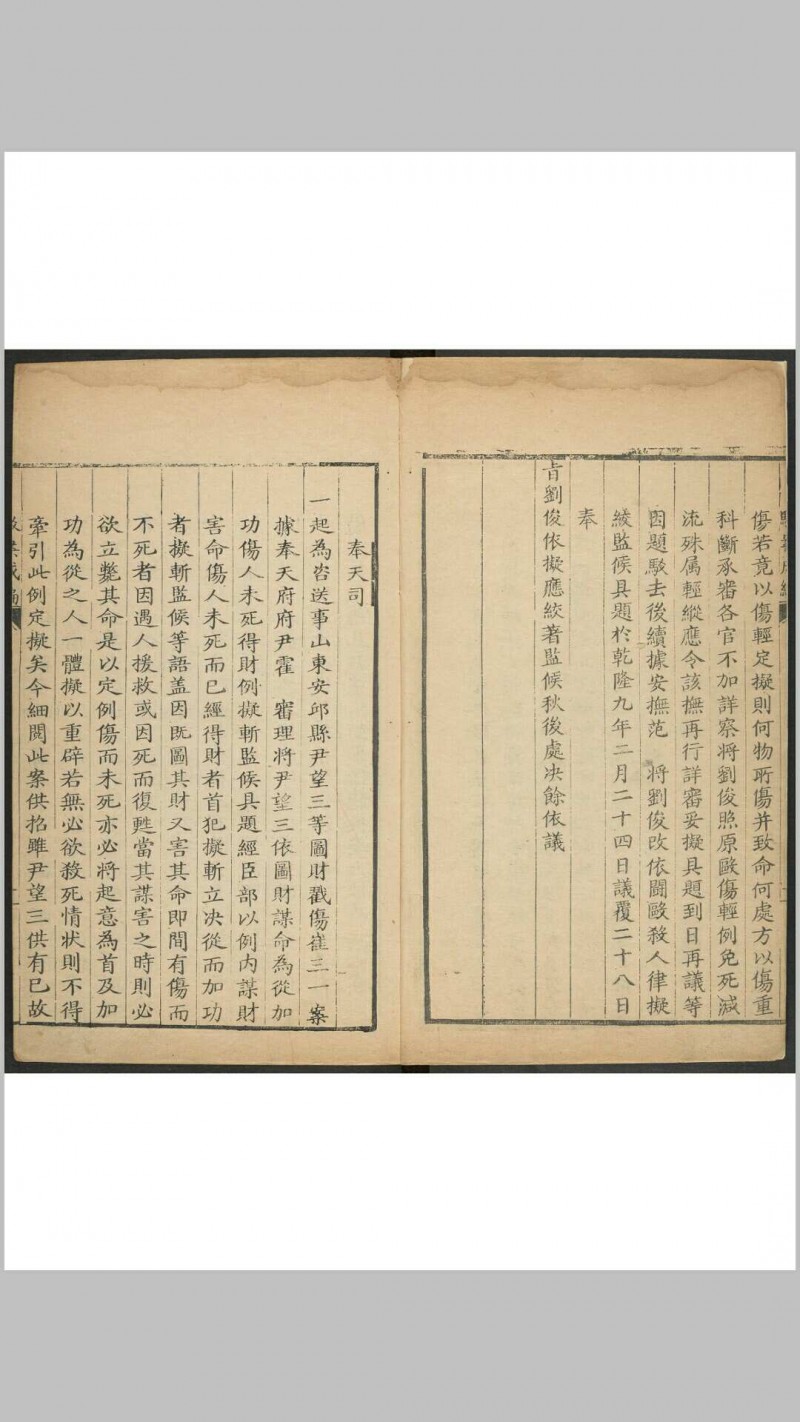 傷若竟以傷輕定擬則何物所傷并致命何處方以傷重
科斷承審各官不加詳察將劉俊照原毆傷輕例免死減
流殊属輕縱應令該撫再行詳審妥擬具題到日再議等
因題駁去後續據安撫范 將劉俊改依鬪毆殺人律擬
絞監候具題於乾隆九年二月二十四日議覆二十八日
奉
旨劉俊依擬應絞著監候秋後處决餘依議
奉天司
一起為咨送事山東安邱縣尹望三等圖財戳傷崔三一案
據奉天府府尹霍 審理將尹望三依圖財謀命為從加
功傷人未死得財例擬斬監候具題經臣部以例内謀財
害命傷人未死而已經得財者首犯擬斬立决從而加功
者擬斬監候等語盖因既圖其財又害其命即間有傷而
不死者因遇人援救或因死而復甦當其謀害之時則必
欲立斃其命是以定例傷而未死亦必將起意為首及加
功為從之人一體擬以重辟若無必欲殺死情狀則不得
牽引此例定擬矣今細閱此案供招雖尹望三供有已故